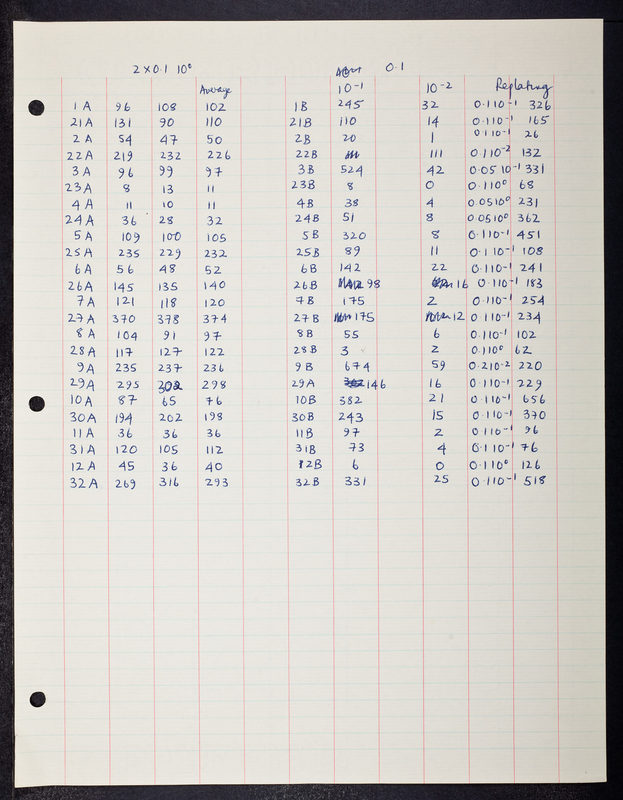 2 x 0.1 10⁰ 0.1
Average 10⁻¹ 10⁻² Replating
1A 96 108 102 1B 245 32 0.1 10⁻¹ 326
21A 131 90 110 21B 110 14 0.1 10⁻¹ 165
2A 54 47 50 2B 20 1 0.1 10⁻¹ 26
22A 219 232 226 22B 111 0.1 10⁻² 132
3A 96 99 97 3B 524 42 0.05 10⁻¹ 331
23A 8 13 11 23B 8 0 0.1 10⁰ 68
4A 11 10 11 4B 38 4 0.05 10⁰ 231
24A 36 28 32 24B 51 8 0.05 10⁰ 362
5A 109 100 105 5B 320 8 0.1 10⁻¹ 451
25A 235 229 232 25B 89 11 0.1 10⁻¹ 108
6A 56 48 52 6B 142 22 0.1 10⁻¹ 241
26A 145 135 140 26B 98 16 0.1 10⁻¹ 183
7A 121 118 120 7B 175 2 0.1 10⁻¹ 254
27A 370 378 374 27B 175 12 0.1 10⁻¹ 234
8A 104 91 97 8B 55 6 0.1 10⁻¹ 102
28A 117 127 122 28B 3 2 0.1 10⁰ 62
9A 235 237 236 9B 674 59 0.2 10⁻² 220
29A 295 302 298 29A 146 16 0.1 10⁻¹ 229
10A 87 65 76 10B 382 21 0.1 10⁻¹ 656
30A 194 202 198 30B 243 15 0.1 10⁻¹ 370
11A 36 36 36 11B 97 2 0.1 10⁻¹ 96
31A 120 105 112 31B 73 4 0.1 10⁻¹ 76
12A 45 36 40 12B 6 0 0.1 10⁰ 126
32A 269 316 293 32B 331 25 0.1 10⁻¹ 518